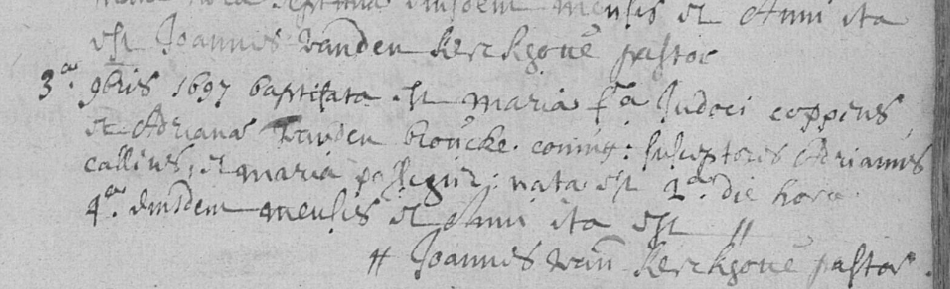 hora septima eiusdem mensis et Anni ita
est Joannes vanden kerckhoue pastor
3.a 9bris 1697 baptisata est maria f.a Judoci coppens
et Adrianae vanden broucke. coniug: susceptores Adrianus
callius, et maria : nata est 2.a die hora
4.a eiusdem mensis et Anni ita est //
// Joannes van kerckhoue pastor.